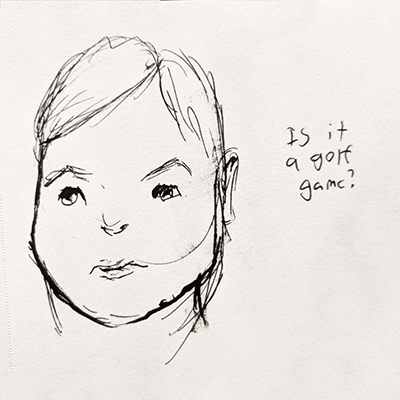 Is it
a golf
game?